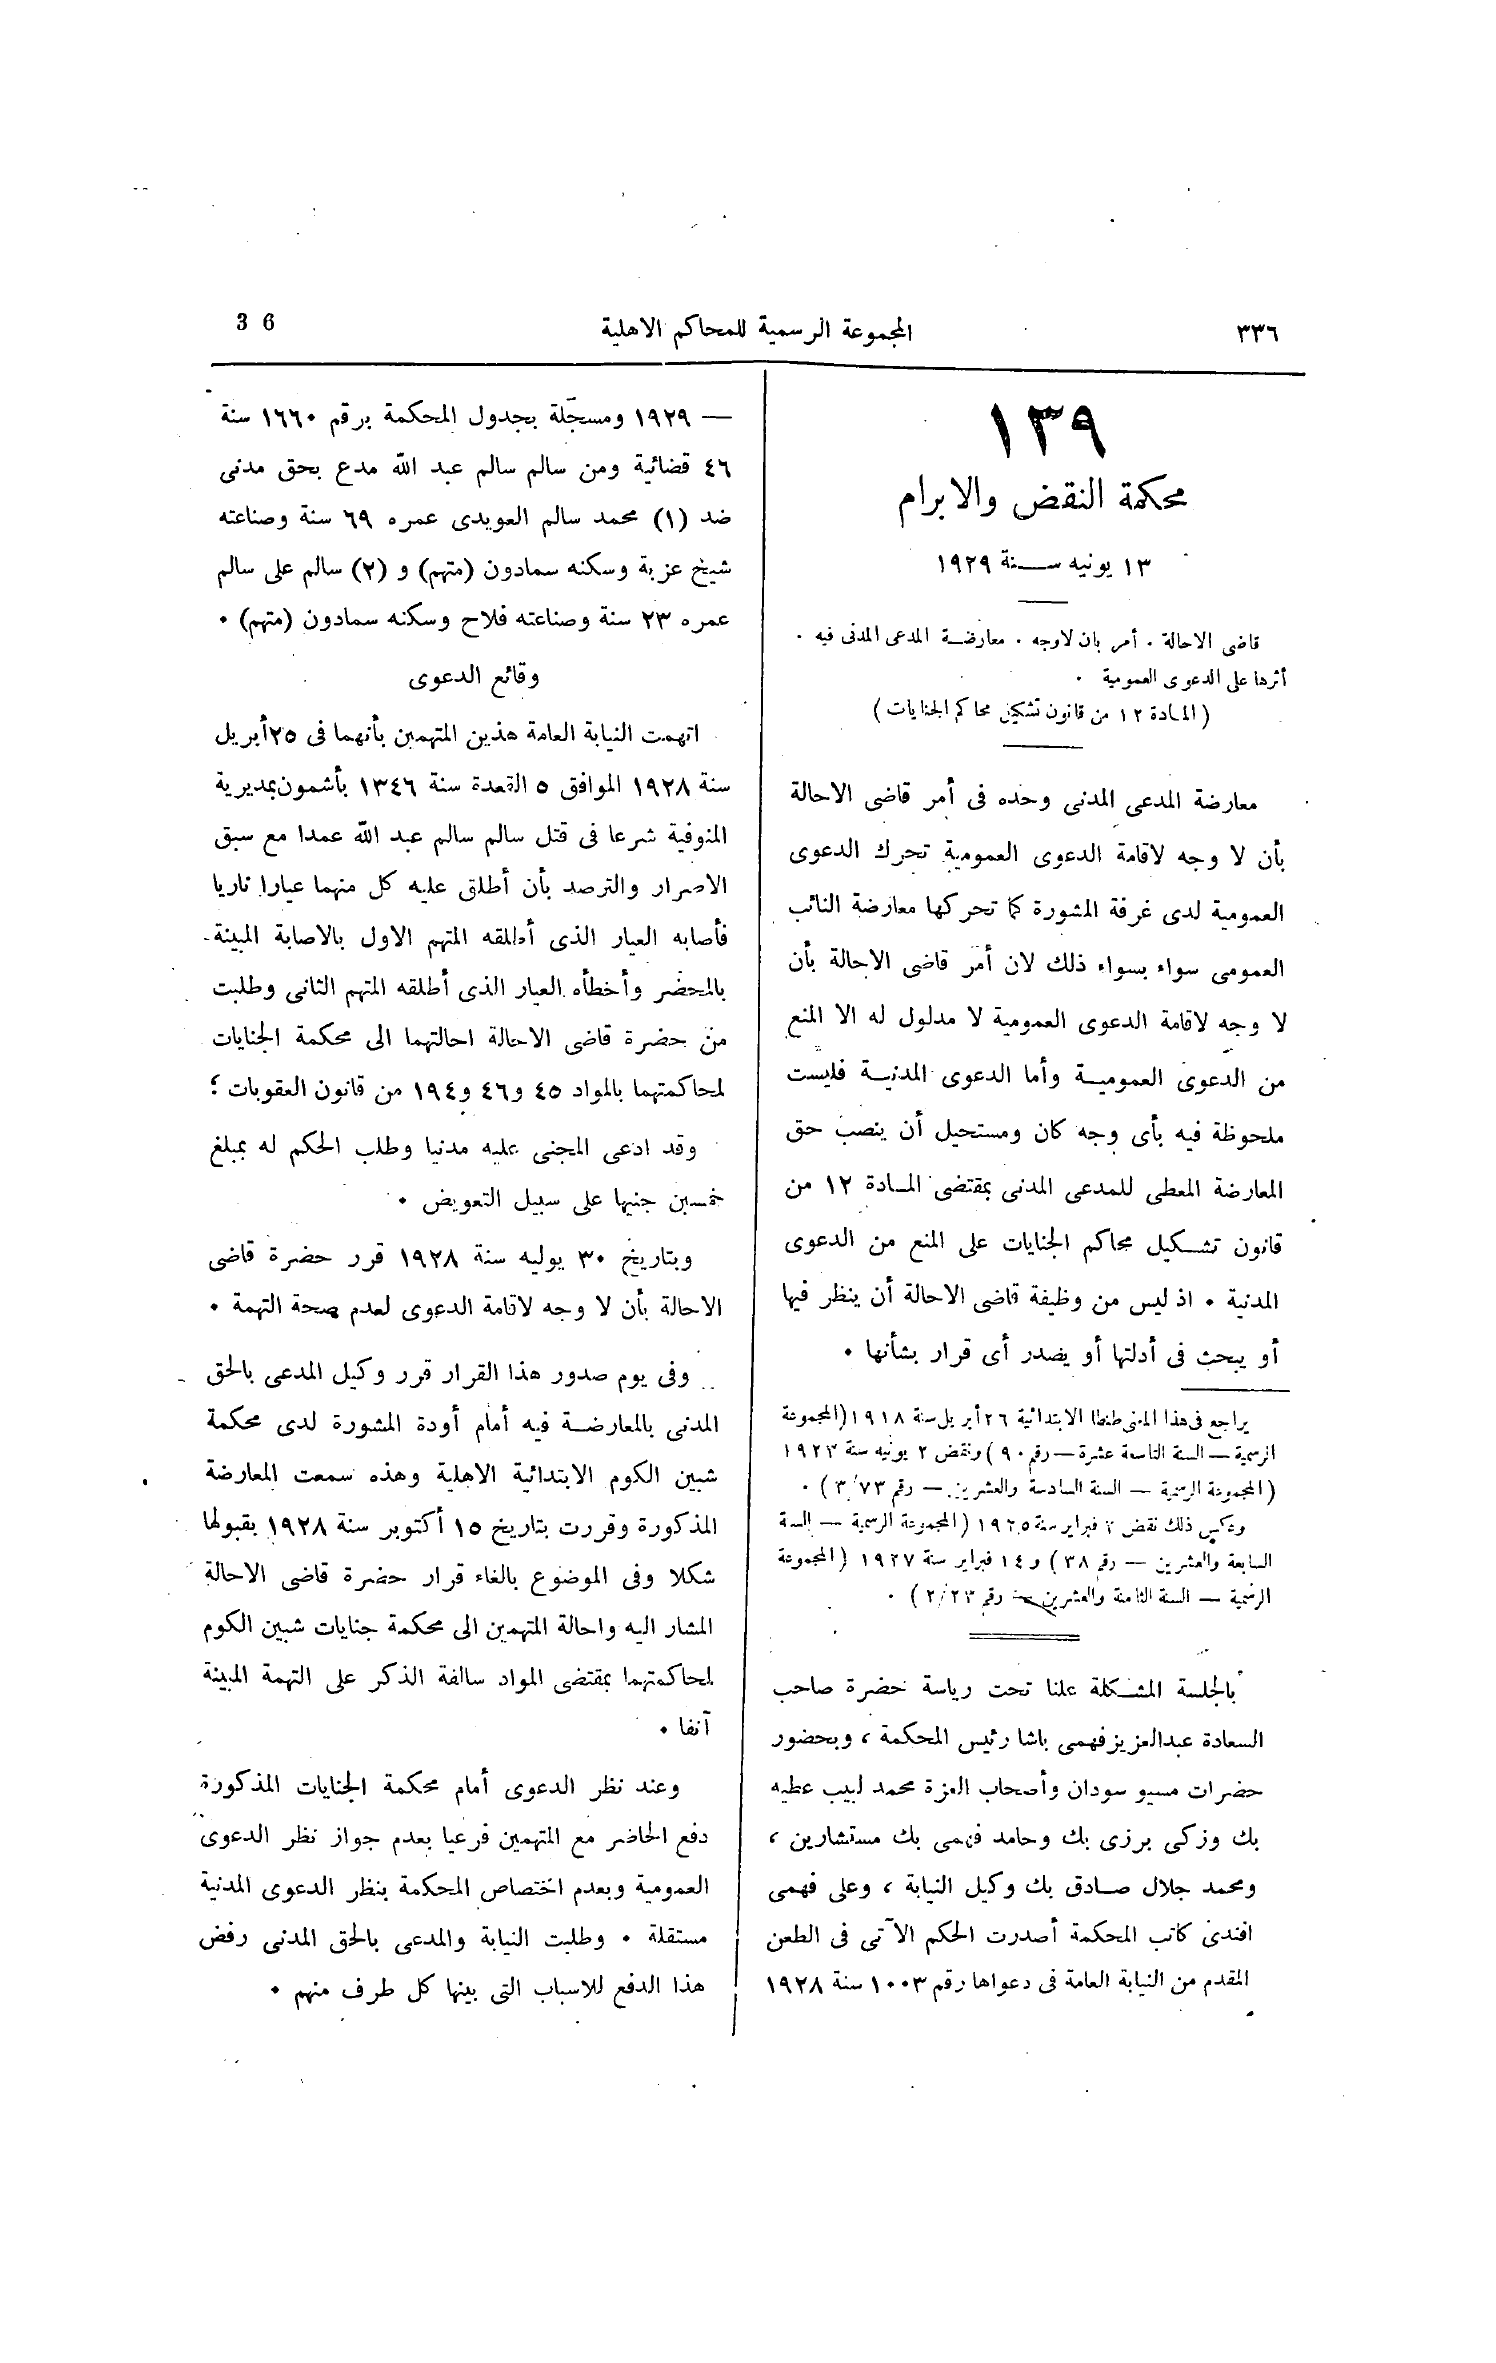 ٣٣٦
المجموعة الرسمية للمحاكم الاهلية
3 6
١٣٩
محكمة النقض والابرام
١٣ يونيه سنة ١٩٢٩
قاضى الاحالة . أمر بان لاوجه . معارضة المدعى المدنى فيه .
أثرها على الدعوى العمومية .
(المادة ١٢ من قانون تشكيل محاكم الجنايات)
معارضة المدعى المدنى وحده فى أمر قاضى الاحالة
بأن لا وجه لاقامة الدعوى العمومية تحرك الدعوى
العمومية لدى غرفة المشورة كما تحركها معارضة النائب
العمومى سواء بسواء ذلك لان أمر قاضى الاحالة بأن
لا وجه لاقامة الدعوى العمومية لا مدلول له الا المنع
من الدعوى العمومية وأما الدعوى المدنية فليست
ملحوظة فيه بأى وجه كان ومستحيل أن ينصب حق
المعارضة المعطى للمدعى المدنى بمقتضى المادة ١٢ من
قانون تشكيل محاكم الجنايات على المنع من الدعوى
المدنية . اذ ليس من وظيفة قاضى الاحالة أن ينظر فيها
أو يبحث فى أدلتها أو يصدر أى قرار بشأنها .
يراجع فى هذا المعنى طنطا الابتدائية ٢٦ أبريل سنة ١٩١٨ (المجموعة
الرسمية — السنة التاسعة عشرة — رقم ٩٠) ونقض ٢ يونيه سنة ١٩٢٣
(المجموعة الرسمية — السنة السادسة والعشرين — رقم ٣/٧٣) .
وعكس ذلك نقض ٢ فبراير سنة ١٩٢٥ (المجموعة الرسمية — السنة
السابعة والعشرين — رقم ٣٨) و ١٤ فبراير سنة ١٩٢٧ (المجموعة
الرسمية — السنة الثامنة والعشرين — رقم ٢/٢٣) .
بالجلسة المشكلة علنا تحت رياسة حضرة صاحب
السعادة عبد العزيز فهمى باشا رئيس المحكمة ، وبحضور
حضرات مسيو سودان وأصحاب العزة محمد لبيب عطيه
بك وزكى برزى بك وحامد فهمى بك مستشارين ،
ومحمد جلال صادق بك وكيل النيابة ، وعلى فهمى
افندى كاتب المحكمة أصدرت الحكم الآتى فى الطعن
المقدم من النيابة العامة فى دعواها رقم ١٠٠٣ سنة ١٩٢٨
— ١٩٢٩ ومسجّلة بجدول المحكمة برقم ١٦٦٠ سنة
٤٦ قضائية ومن سالم سالم عبد الله مدع بحق مدنى
ضد (١) محمد سالم العويدى عمره ٦٩ سنة وصناعته
شيخ عزبة وسكنه سمادون (متهم) و (٢) سالم على سالم
عمره ٢٣ سنة وصناعته فلاح وسكنه سمادون (متهم) .
وقائع الدعوى
اتهمت النيابة العامة هذين المتهمين بأنهما فى ٢٥ أبريل
سنة ١٩٢٨ الموافق ٥ القعدة سنة ١٣٤٦ بأشمون بمديرية
المنوفية شرعا فى قتل سالم سالم عبد الله عمدا مع سبق
الاصرار والترصد بأن أطلق عليه كل منهما عيارا ناريا
فأصابه العيار الذى أطلقه المتهم الاول بالاصابة المبينة
بالمحضر وأخطأه العيار الذى أطلقه المتهم الثانى وطلبت
من حضرة قاضى الاحالة احالتهما الى محكمة الجنايات
لمحاكمتهما بالمواد ٤٥ و٤٦ و١٩٤ من قانون العقوبات ؛
وقد ادعى المجنى عليه مدنيا وطلب الحكم له بمبلغ
خمسين جنيها على سبيل التعويض .
وبتاريخ ٣٠ يوليه سنة ١٩٢٨ قرر حضرة قاضى
الاحالة بأن لا وجه لاقامة الدعوى لعدم صحة التهمة .
وفى يوم صدور هذا القرار قرر وكيل المدعى بالحق
المدنى بالمعارضة فيه أمام أودة المشورة لدى محكمة
شبين الكوم الابتدائية الاهلية وهذه سمعت المعارضة
المذكورة وقررت بتاريخ ١٥ أكتوبر سنة ١٩٢٨ بقبولها
شكلا وفى الموضوع بالغاء قرار حضرة قاضى الاحالة
المشار اليه واحالة المتهمين الى محكمة جنايات شبين الكوم
لمحاكمتهما بمقتضى المواد سالفة الذكر على التهمة المبينة
آنفا .
وعند نظر الدعوى أمام محكمة الجنايات المذكورة
دفع الحاضر مع المتهمين فرعيا بعدم جواز نظر الدعوى
العمومية وبعدم اختصاص المحكمة بنظر الدعوى المدنية
مستقلة . وطلبت النيابة والمدعى بالحق المدنى رفض
هذا الدفع للاسباب التى بينها كل طرف منهم .